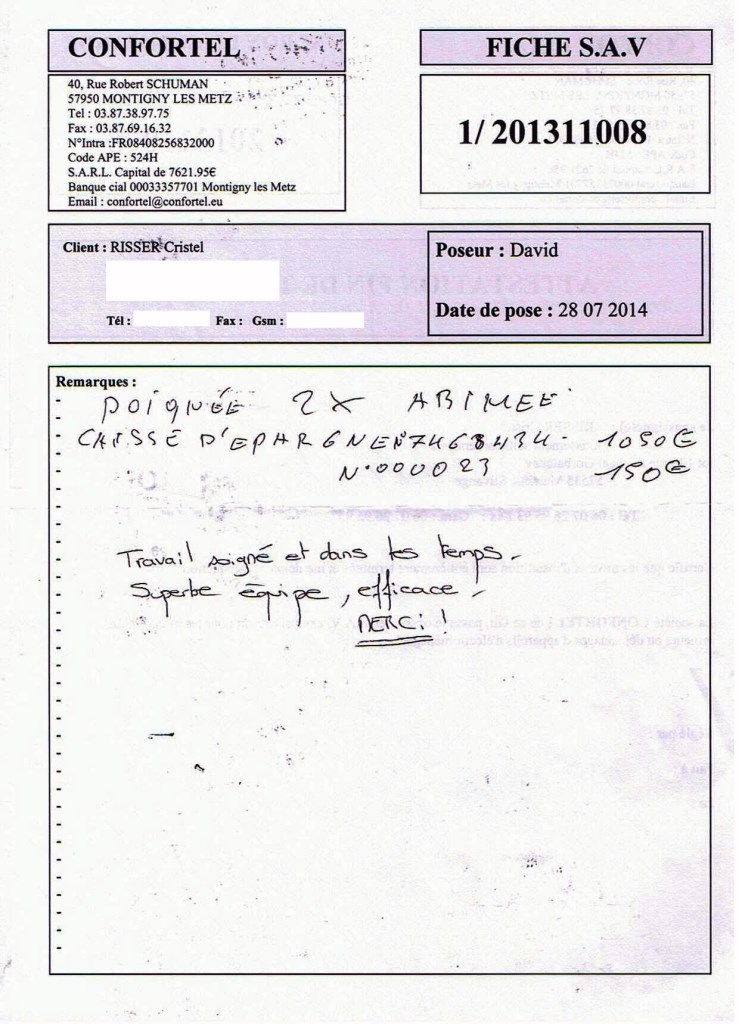 CONFORTEL
40, Rue Robert SCHUMAN
57950 MONTIGNY LES METZ
Tel : 03.87.38.97.75
Fax : 03.87.69.16.32
N°Intra :FR08408256832000
Code APE : 524H
S.A.R.L. Capital de 7621.95€
Banque cial 00033357701 Montigny les Metz
Email : confortel@confortel.eu
FICHE S.A.V
1/ 201311008
Client : RISSER Cristel
Tél : Fax : Gsm :
Poseur : David
Date de pose : 28 07 2014
Remarques :
POIGNÉE 2X ABIMEE
CAISSE D'EPARGNE 1090€
N°000023 150€
Travail soigné et dans les temps.
Superbe équipe, efficace.
MERCI !